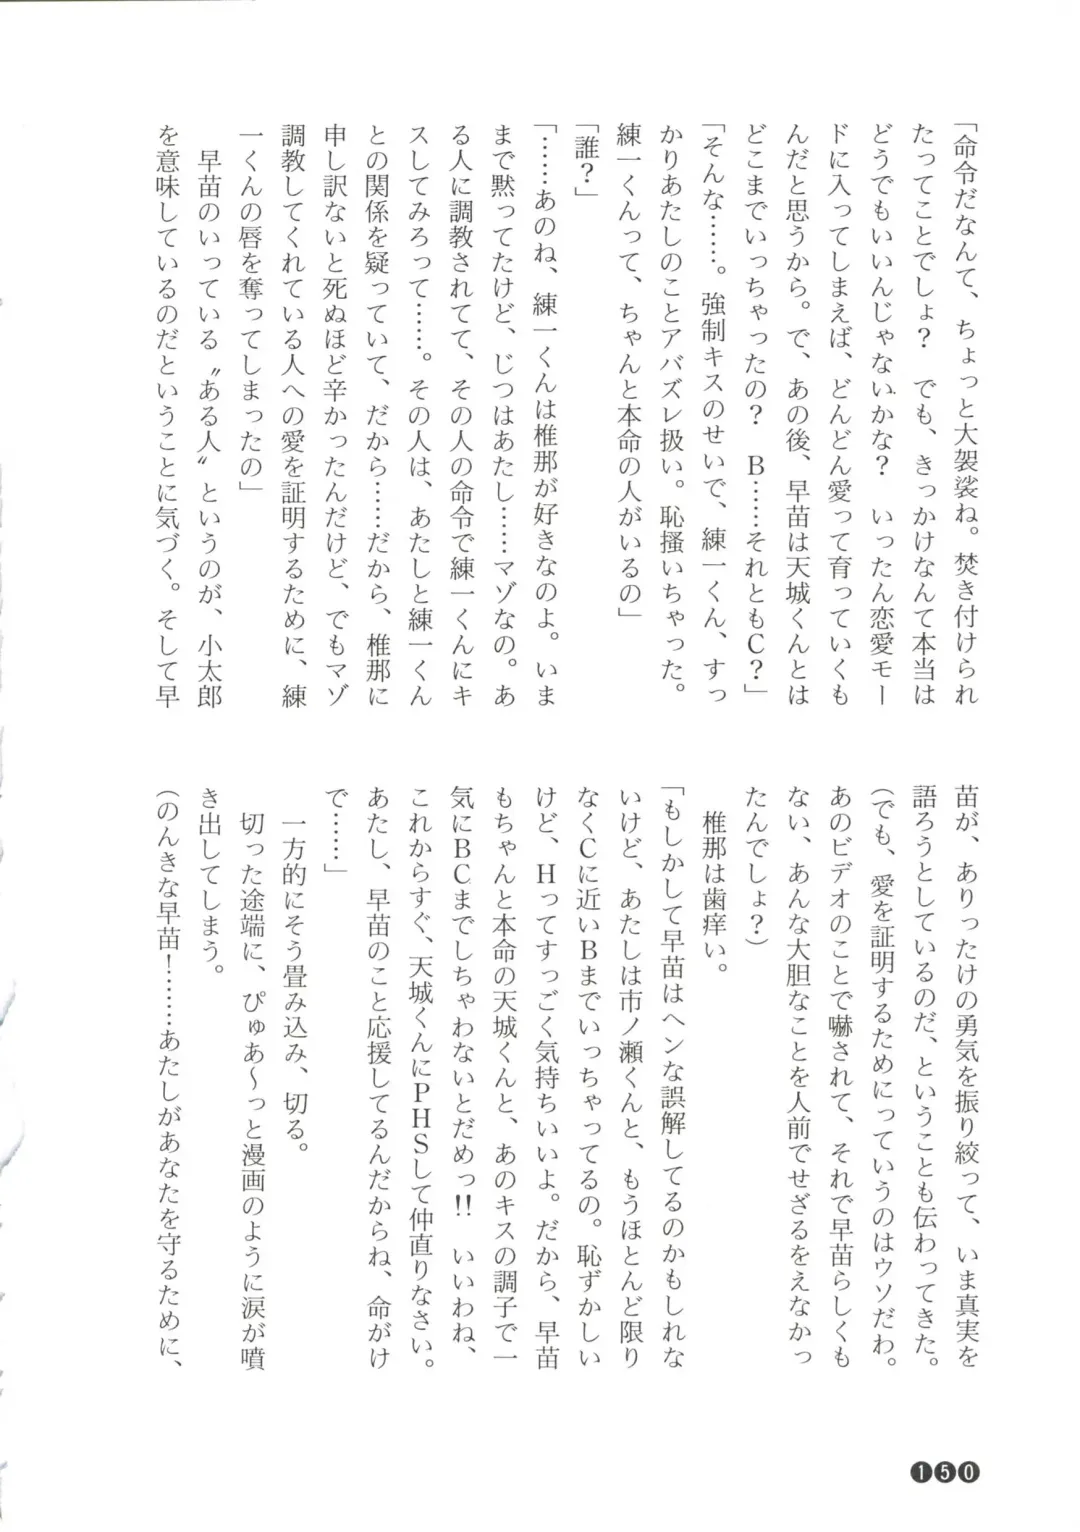 「命令だなんて、ちょっと大袈裟ね。焚き付けられ
たってことでしょ？　でも、きっかけなんて本当は
どうでもいいんじゃないかな？　いったん恋愛モー
ドに入ってしまえば、どんどん愛って育っていくも
んだと思うから。で、あの後、早苗は天城くんとは
どこまでいっちゃったの？　Ｂ……それともＣ？」
「そんな……。強制キスのせいで、練一くん、すっ
かりあたしのことアバズレ扱い。恥掻いちゃった。
練一くんって、ちゃんと本命の人がいるの」
「誰？」
「……あのね、練一くんは椎那が好きなのよ。いま
まで黙ってたけど、じつはあたし……マゾなの。あ
る人に調教されてて、その人の命令で練一くんにキ
スしてみろって……。その人は、あたしと練一くん
との関係を疑っていて、だから……だから、椎那に
申し訳ないと死ぬほど辛かったんだけど、でもマゾ
調教してくれている人への愛を証明するために、練
一くんの唇を奪ってしまったの」
　早苗のいっている〝ある人〟というのが、小太郎
を意味しているのだということに気づく。そして早
苗が、ありったけの勇気を振り絞って、いま真実を
語ろうとしているのだ、ということも伝わってきた。
（でも、愛を証明するためにっていうのはウソだわ。
あのビデオのことで嚇されて、それで早苗らしくも
ない、あんな大胆なことを人前でせざるをえなかっ
たんでしょ？）
　椎那は歯痒い。
「もしかして早苗はヘンな誤解してるのかもしれな
いけど、あたしは市ノ瀬くんと、もうほとんど限り
なくＣに近いＢまでいっちゃってるの。恥ずかしい
けど、Ｈってすっごく気持ちいいよ。だから、早苗
もちゃんと本命の天城くんと、あのキスの調子で一
気にＢＣまでしちゃわないとだめっ!!　いいわね、
これからすぐ、天城くんにＰＨＳして仲直りなさい。
あたし、早苗のこと応援してるんだからね、命がけ
で……」
　一方的にそう畳み込み、切る。
　切った途端に、ぴゅあ〜っと漫画のように涙が噴
き出してしまう。
（のんきな早苗！……あたしがあなたを守るために、
150